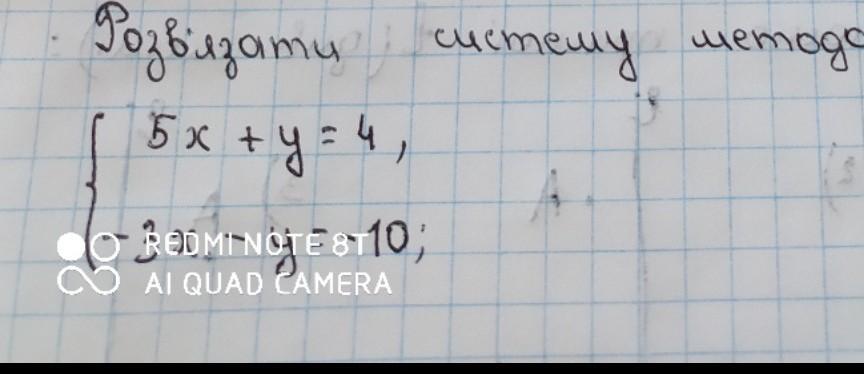 Розв'язати систему методо
5x + y = 4,
-3x - y = -10;
REDMI NOTE 8T
AI QUAD CAMERA